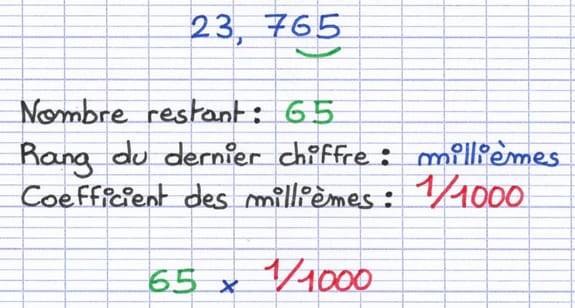 23, 765
Nombre restant : 65
Rang du dernier chiffre : millièmes
Coefficient des millièmes : 1/1000
65 x 1/1000